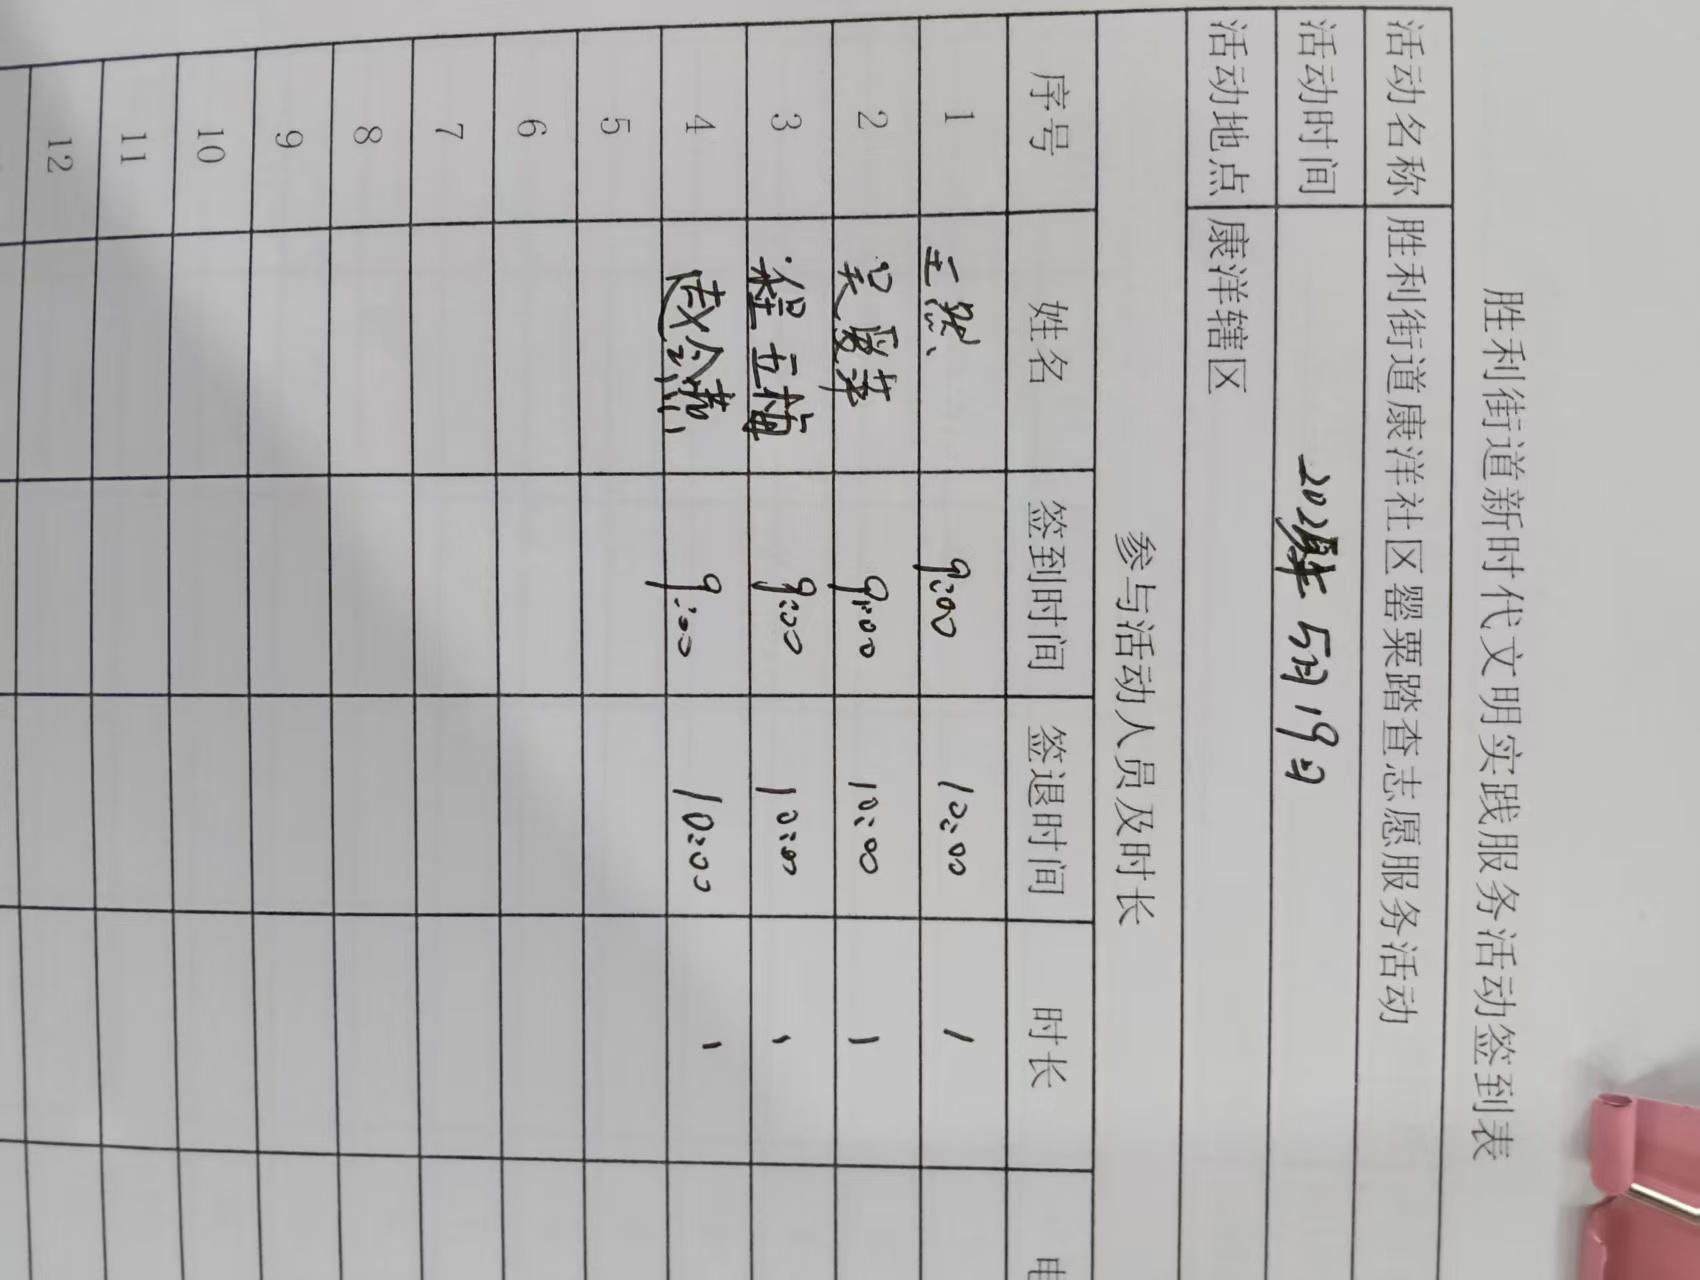 胜利街道新时代文明实践服务活动签到表
活动名称 胜利街道康洋社区罂粟踏查志愿服务活动
活动时间 5月19日
活动地点 康洋辖区
参与活动人员及时长
序号 姓名 签到时间 签退时间 时长 电
1 王然 9:00 10:00 1
2 吴爱苹 9:00 10:00 1
3 程五梅 9:00 10:00 1
4 赵令燕 9:00 10:00 1
5
6
7
8
9
10
11
12